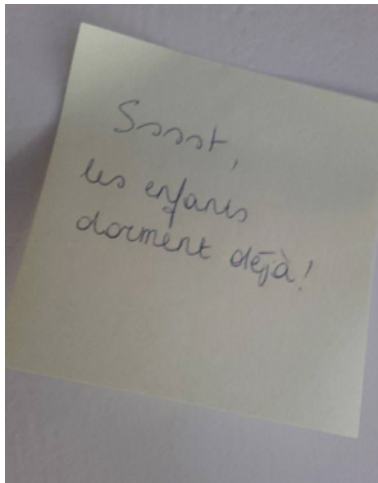 Sssst,
les enfants
dorment déjà!